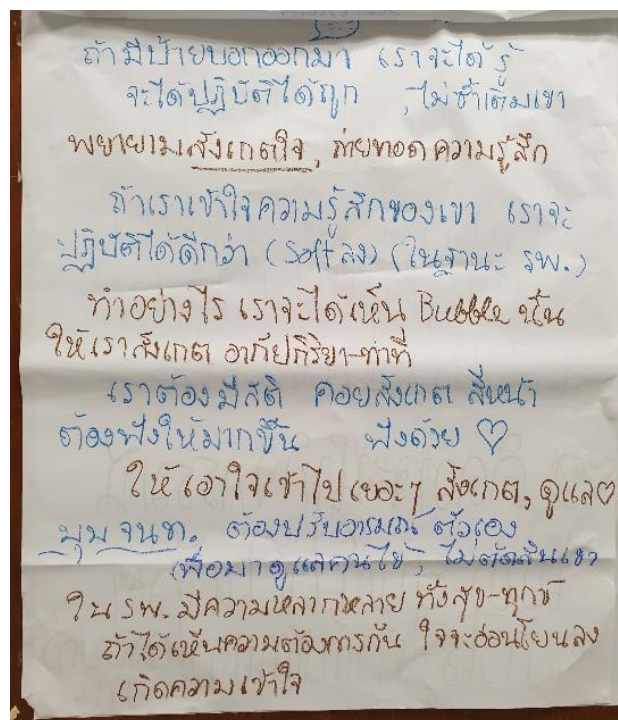 ถ้ามีป้ายบอกออกมา เราจะได้รู้
จะได้ปฏิบัติได้ถูก , ไม่ซ้ำเติมเขา
พยายามสังเกตใจ, ถ่ายทอดความรู้สึก
ถ้าเราเข้าใจความรู้สึกของเขา เราจะ
ปฏิบัติได้ดีกว่า (Soft ลง) (ในฐานะ รพ.)
ทำอย่างไร เราจะได้เห็น Bubble นั้น
ให้เราสังเกต อากัปกิริยา-ท่าที
เราต้องมีสติ คอยสังเกต สีหน้า
ต้องฟังให้มากขึ้น ฟังด้วย ♡
ให้เอาใจเข้าไปเยอะๆ สังเกต, ดูแล♡
มุม จนท. ต้องปรับอารมณ์ ตัวเอง
เพื่อมาดูแลคนไข้, ไม่ตัดสินเขา
ใน รพ. มีความหลากหลาย ทั้งสุข-ทุกข์
ถ้าได้เห็นความต้องการกัน ใจจะอ่อนโยนลง
เกิดความเข้าใจ